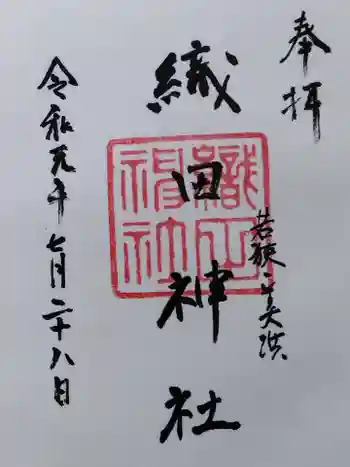 奉拝
若狭・美浜
織田神社
令和元年七月二十八日
織田神社